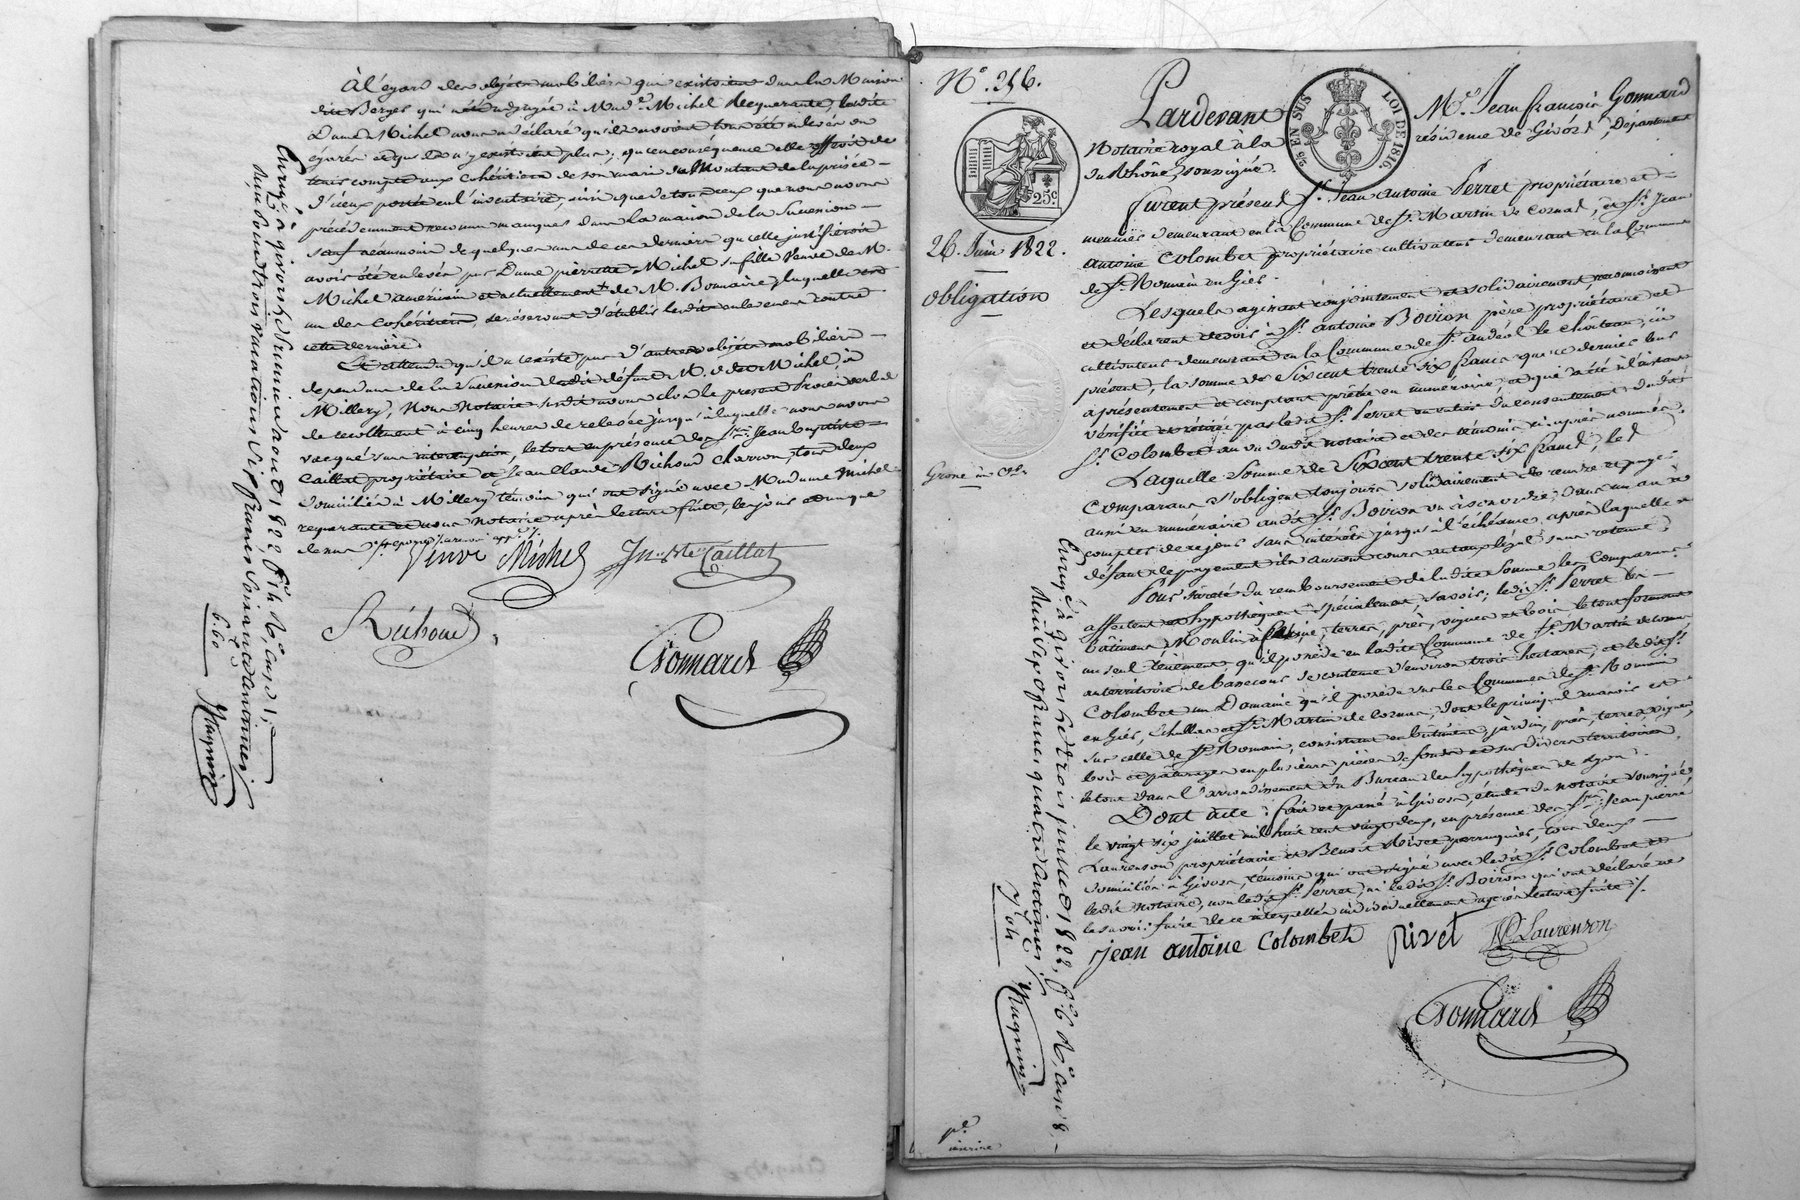 À l'égard des objets mobiliers qui existoient dans la Maison
des Berges qui a été adjugée à Made. Michel Requerante, ladite
Dame Michel nous a déclaré qu'ils avoient tous été enlevés ou
égarés et qu'il n'y existoient plus, qu'en conséquence elle offroit de
tenir compte aux cohéritiers de son mari du Montant de la prisée
d'iceux portée en l'inventaire, ainsi que de tous ceux que nous avons
précédemment reconnu manquer dans la maison de la Succession
sauf néanmoins de quelques uns de ces derniers qu'elle justifieroit
avoir été enlevés par Dame pierrette Michel sa fille Veuve de M.
Michel américain et actuellement de M. Bonnaire, laquelle est
un des cohéritiers, se réservant d'établir ledit enlevement contre
cette dernière.
Et attendu qu'il n'existe pas d'autres objets mobiliers
dependans de la Succession dudit défunt M. Michel, à
Millery, Nous Notaire susdit avons clos le présent Procès verbal
de recollement à cinq heures de relevée jusqu'à laquelle nous avons
vacqué sans interruption, le tout en présence des Srs. Jean Baptiste
Caillat propriétaire et Jean Claude Richoud Charron, tous deux
domiciliés à Millery témoins qui ont signé avec Madame Michel
requerante et nous notaire après lecture faite, les jour et an que
dessus
Veuve Michel Jn Bte Caillat
Richoud
Gonnard
Enreg.é à givors le deux août 1822, f° R° Case
Reçu pour trois vacations six francs soixante centimes
6.60
N°. 256.
25c
EN SUS
LOI DE 1816
26 Juin 1822.
obligation
Grosse
Pardevant Me. Jean françois Gonnard
Notaire royal à la résidence de Givors, Département
du Rhône, soussigné.
furent présens Sr. Jean Antoine Perret propriétaire et
meunier demeurant en la Commune de St. Martin de Cornas, et Sr. Jean
Antoine Colombet propriétaire cultivateur demeurant en la Commune
de St. Romain en Giés.
Lesquels agissant conjointement et solidairement, reconnoissent
et déclarent devoir à Sr. Antoine Boiron père propriétaire et
cultivateur demeurant en la Commune de St. Andéol le château, ici
présent, la somme de Six cent trente six francs que ce dernier leur
a présentement et comptant prêtée en numéraire, et qui a été à l'instant
vérifiée et retirée par ledit Sr. Perret en entier du consentement dudit
Sr. Colombet au vu dudit notaire et des témoins ci après nommés.
Laquelle somme de Six cent trente six francs, led.
Comparans s'obligent toujours solidairement de rendre et payer
aussi en numéraire audit Sr. Boiron ou à son ordre, dans un an à
compter de ce jour sans intérêts jusqu'à l'échéance, après laquelle à
défaut de payement ils auront cours au taux légal sans retenue.
Pour sureté du remboursement de ladite somme les Comparans
affectent et hypothèquent spécialement savoir; ledit Sr. Perret les
bâtimens, Moulin à farine, terres, prés, vignes et bois le tout formant
un seul ténement qu'il possède en ladite Commune de St. Martin de Cornas,
au territoire de bancous de contenue d'environ trois hectares, et ledit Sr.
Colombet un Domaine qu'il possède sur les Communes de St. Romain
en Giés, Echallas et St. Martin de Cornas, dont le principal manoir est
sur celle de St. Romain, consistant en bâtimens, jardin, prés, terres, vignes,
bois et pâturages en plusieurs pièces de fonds et sur divers territoires
le tout dans l'arrondissement du Bureau des hypothèques de Lyon.
Dont acte: fait et passé à Givors, étude du notaire soussigné,
le vingt six juillet mil huit cent vingt deux, en présence des Srs. Jean pierre
Laurenson propriétaire et Benoit Rivet perruquier, tous deux
domiciliés à Givors, témoins qui ont signé avec ledit Sr. Colombet et
ledit notaire, non ledit Sr. Perret, ni ledit Sr. Boiron qui ont déclaré ne
le savoir faire de ce interpellés individuellement après lecture faite
Jean antoine Colombet Rivet JP Laurenson
Gonnard
Enreg.é à givors le trois juillet 1822, f° 6 R°, case 8.
Reçu six francs quatre centimes